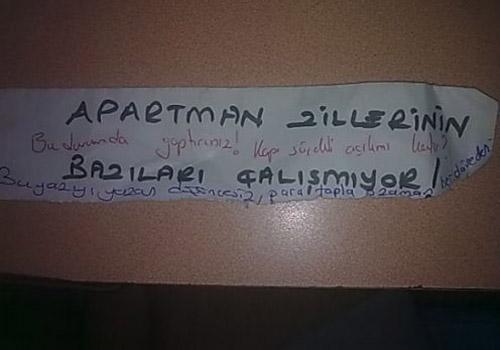 APARTMAN ZİLLERİNİN
Bu durumda yaptırınız! Kapı sürekli açılımı
BAZILARI ÇALIŞMIYOR!
Bu yazıyı yazan düşüncesiz, para topla o zaman